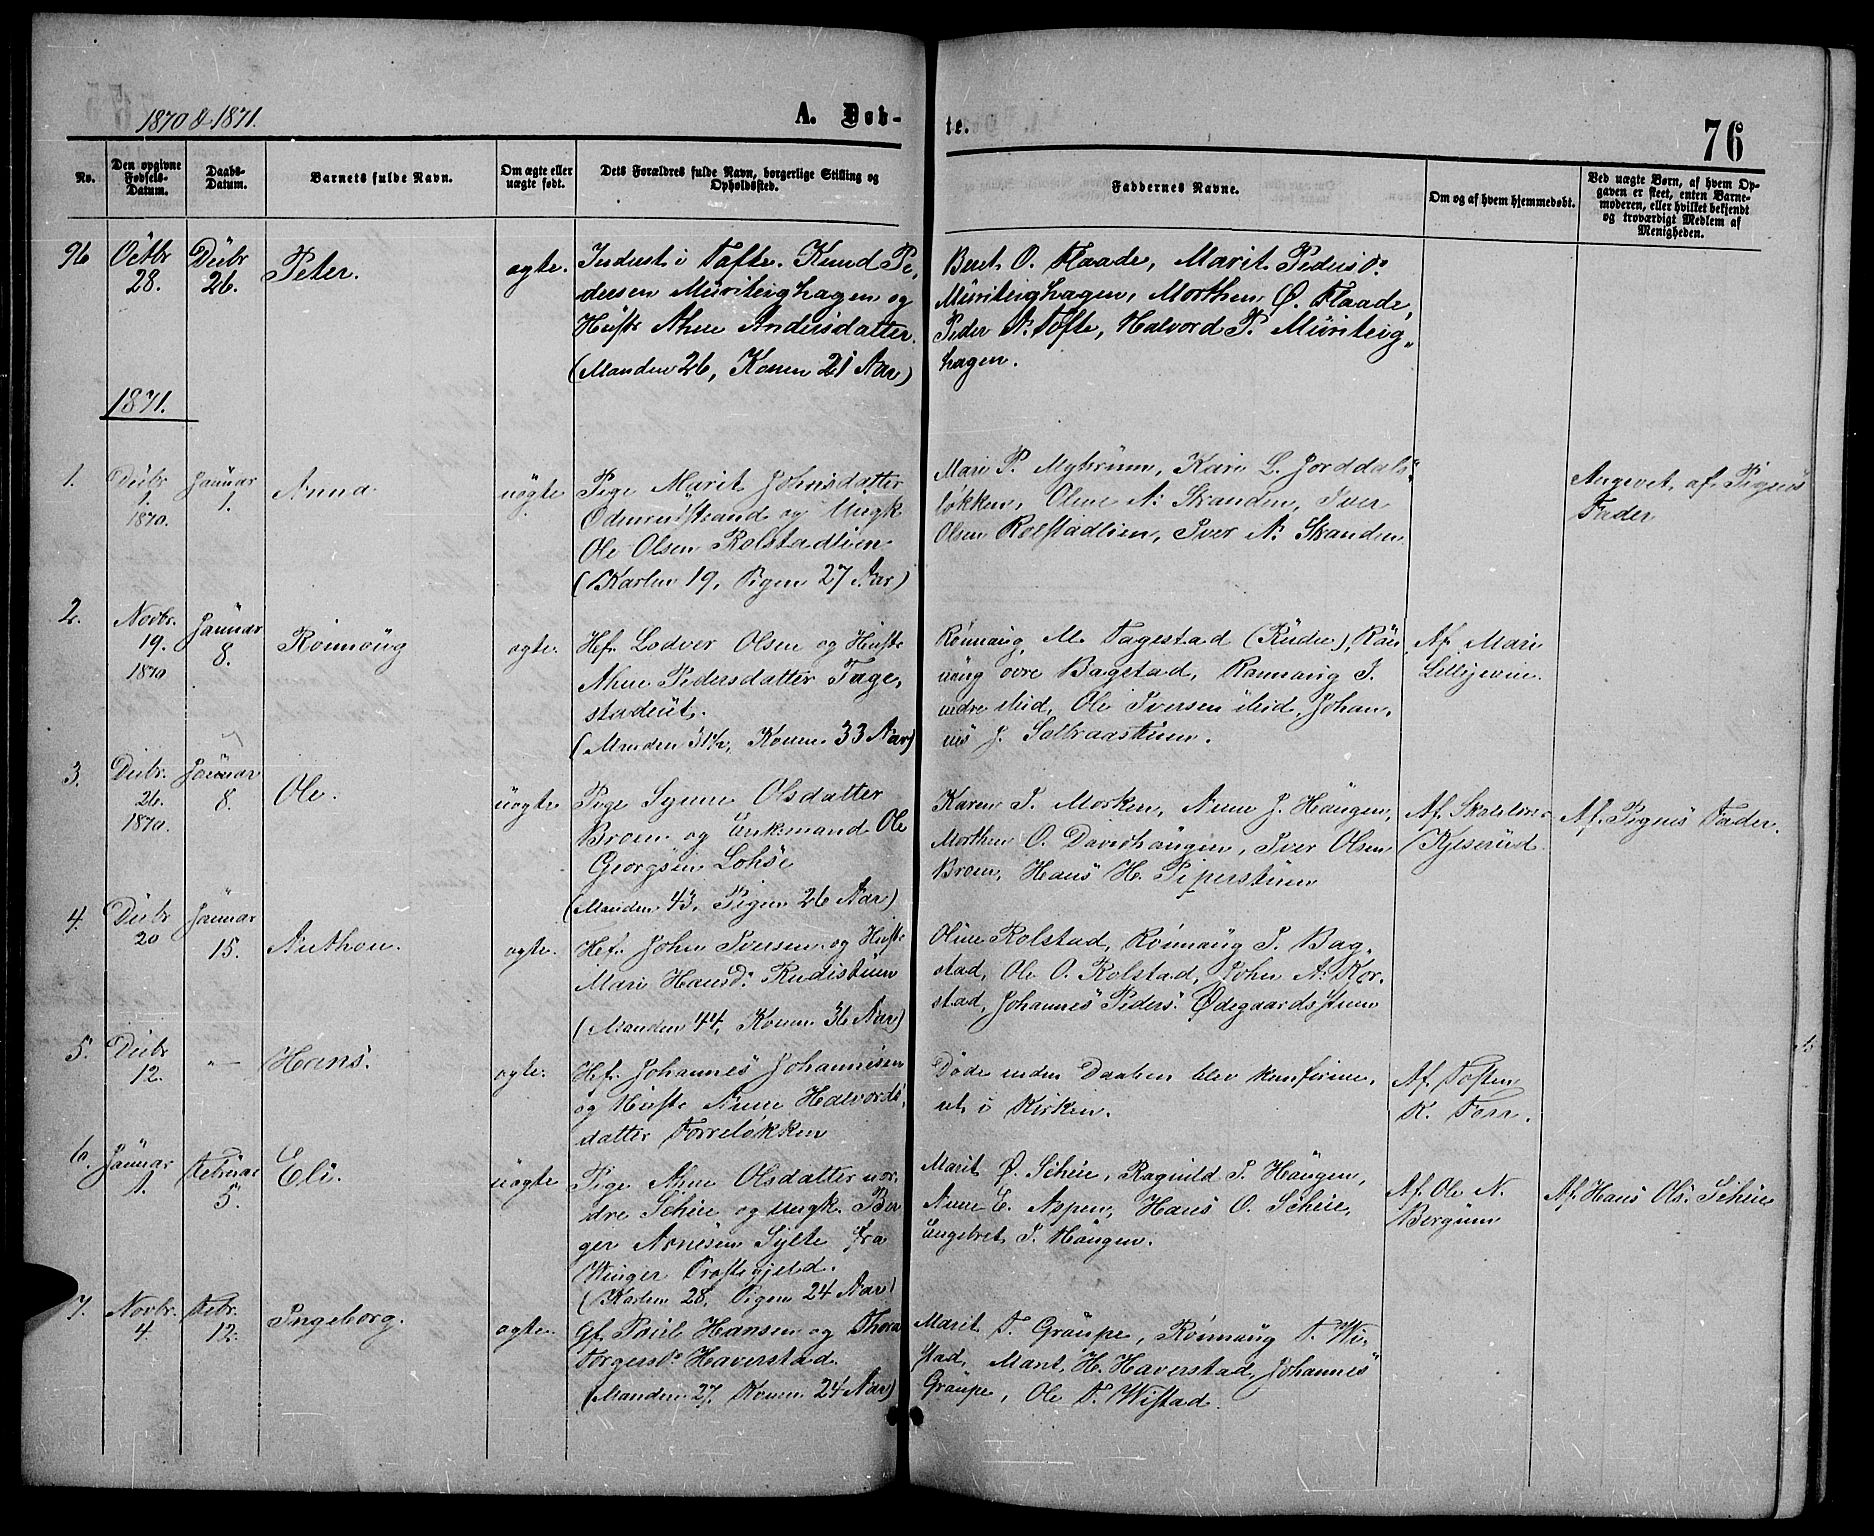 1870 & 1871.
A. Døb-
te.
76
No.
Den opgivne
Fødsels-
Datum.
Daabs-
Datum.
Barnets fulde Navn.
Om ægte eller
uægte født.
Dets Forældres fulde Navn, borgerlige Stilling og
Opholdssted.
Faddernes Navne.
Om og af hvem hjemmedøbt.
Ved uægte Børn, af hvem Op-
gaven er skeet, enten Barne-
moderen, eller hvilket bekjendt
og troværdigt Medlem af
Menigheden.
96
Octbr
28.
Decbr
26.
Peter.
ægte.
Inderst i Tofte. Knud Pe-
dersen Muriteighagen og
Hustr Ahne Andersdatter.
(Manden 26, Konen 21 Aar)
Beret O. Flaade, Marit Pedersd.
Muriteighagen, Morthen Ø. Flaade,
Peder A. Tofte, Halvord P. Muriteig-
hagen.
1871.
1.
Decbr
1.
1870.
Januar
1.
Anna
uægte
Pige Marit Johnsdatter
og Ungk
Ole Olsen Rolstadlien
(Karlen 19, Pigen 27 Aar)
Mari P. Myhrum, Kari L. Jorddals-
løkken, Oline A. Stranden, Iver
Olsen Rolstadlien, Iver A. Stranden
Angivet af Pigens
Fader
2.
Novbr.
19.
1870
Januar
8.
Rönnoug
ægte.
Hf. Lodver Olsen og Hustr
Ahne Pedersdatter Tage-
stadeit.
(Manden 31½, Konen 33 Aar)
Rønnaug M. Tagestad (Rudie), Røn-
naug øvre Bagstad, Rønnaug I.
nedre ibid, Ole Iversen ibid, Johan-
nes J. Solbraastuen.
Af Mari
Lillijevin.
3.
Decbr.
26.
1870.
Januar
8.
Ole.
uægte.
Pige Synne Olsdatter
Broen og Enkemand Ole
Georgsen Lohse
(Manden 43, Pigen 26 Aar)
Karen T. Morken, Anne J. Haugen,
Morthen O. Davidhaugen, Iver Olsen
Broen, Hans H. Piperstuen
Af Skoleln.
Kjeserud.
Af Pigens Fader.
4.
Decbr
20
Januar
15.
Anthon.
ægte.
Hf. John Iversen og Hustr
Mari Hansd. Rudistuen
(Manden 44, Konen 36 Aar)
Oline Rolstad, Rønnaug P. Bag-
stad, Ole O. Rolstad, John A. Kor-
stad, Johannes Peders. Ødegaardsstuen
5.
Decbr
12.
"—
Hans.
ægte.
Hf. Johannes Johannesen
og Hustr Anne Halvords-
datter Forreløkken
Døde inden Daaben blev konfirme-
ret i Kirken.
Af Tosten
K. Forr.
6.
Januar
1.
Februar
5.
Eli.
uægte.
Pige Ahne Olsdatter nor-
dre Scheie og Ungk. Bir
ger Arnesen Sylte fra
Winger Præstegjeld.
(Karlen 28, Pigen 24 Aar)
Marit Ø. Scheie, Ragnild T. Haugen,
Anne E. Aspen, Hans O. Scheie,
Engebret T. Haugen.
Af Ole N.
Bergum
Af Hans Ols. Scheie
7.
Novbr.
4.
Febr.
12.
Ingeborg.
ægte.
Gf. Paul Hansen og Thora
Torgersd. Haverstad.
(Manden 27, Konen 24 Aar)
Marit T. Graupe, Rønnaug T. Wi-
stad, Marit H. Haverstad, Johannes
Graupe, Ole T. Wistad.